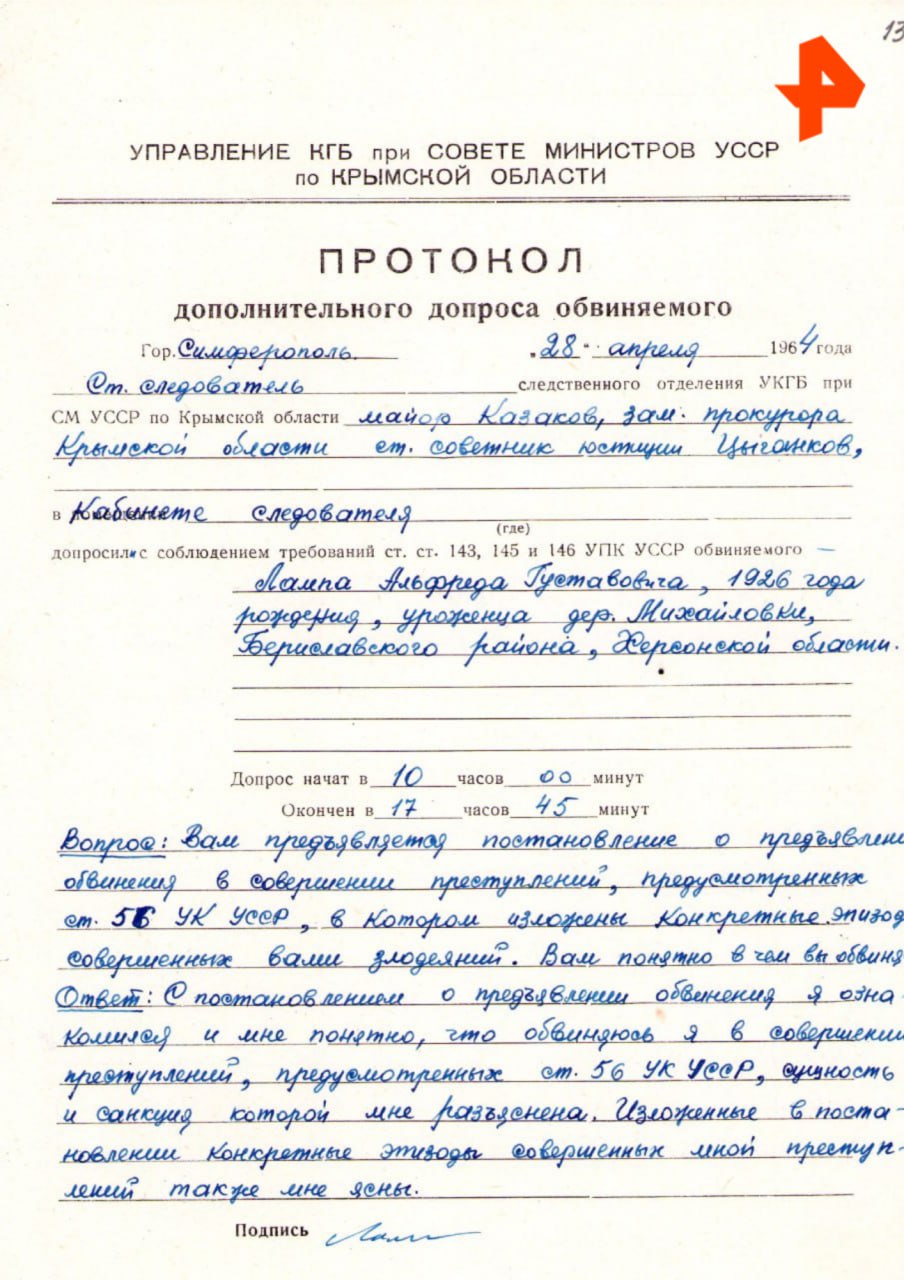 13
УПРАВЛЕНИЕ КГБ при СОВЕТЕ МИНИСТРОВ УССР
по КРЫМСКОЙ ОБЛАСТИ
ПРОТОКОЛ
дополнительного допроса обвиняемого
Гор. Симферополь. „28“ апреля 1964 года
Ст. следователь следственного отделения УКГБ при
СМ УССР по Крымской области майор Казаков, зам. прокурора
Крымской области ст. советник юстиции Цыганков,
в Кабинете следователя
(где)
допросили с соблюдением требований ст. ст. 143, 145 и 146 УПК УССР обвиняемого —
Лампа Альфреда Густавовича, 1926 года
рождения, уроженца дер. Михайловки,
Бериславского района, Херсонской области.
Допрос начат в 10 часов 00 минут
Окончен в 17 часов 45 минут
Вопрос: Вам предъявляется постановление о предъявлени
обвинения в совершении преступлений, предусмотренных
ст. 56 УК УССР, в котором изложены конкретные эпизод
совершенных вами злодеяний. Вам понятно в чем вы обвиня
Ответ: С постановлением о предъявлении обвинения я озна-
комился и мне понятно, что обвиняюсь я в совершении
преступлений, предусмотренных ст. 56 УК УССР, сущность
и санкция которой мне разъяснена. Изложенные в поста-
новлении конкретные эпизоды совершенных мной преступ-
лений также мне ясны.
Подпись